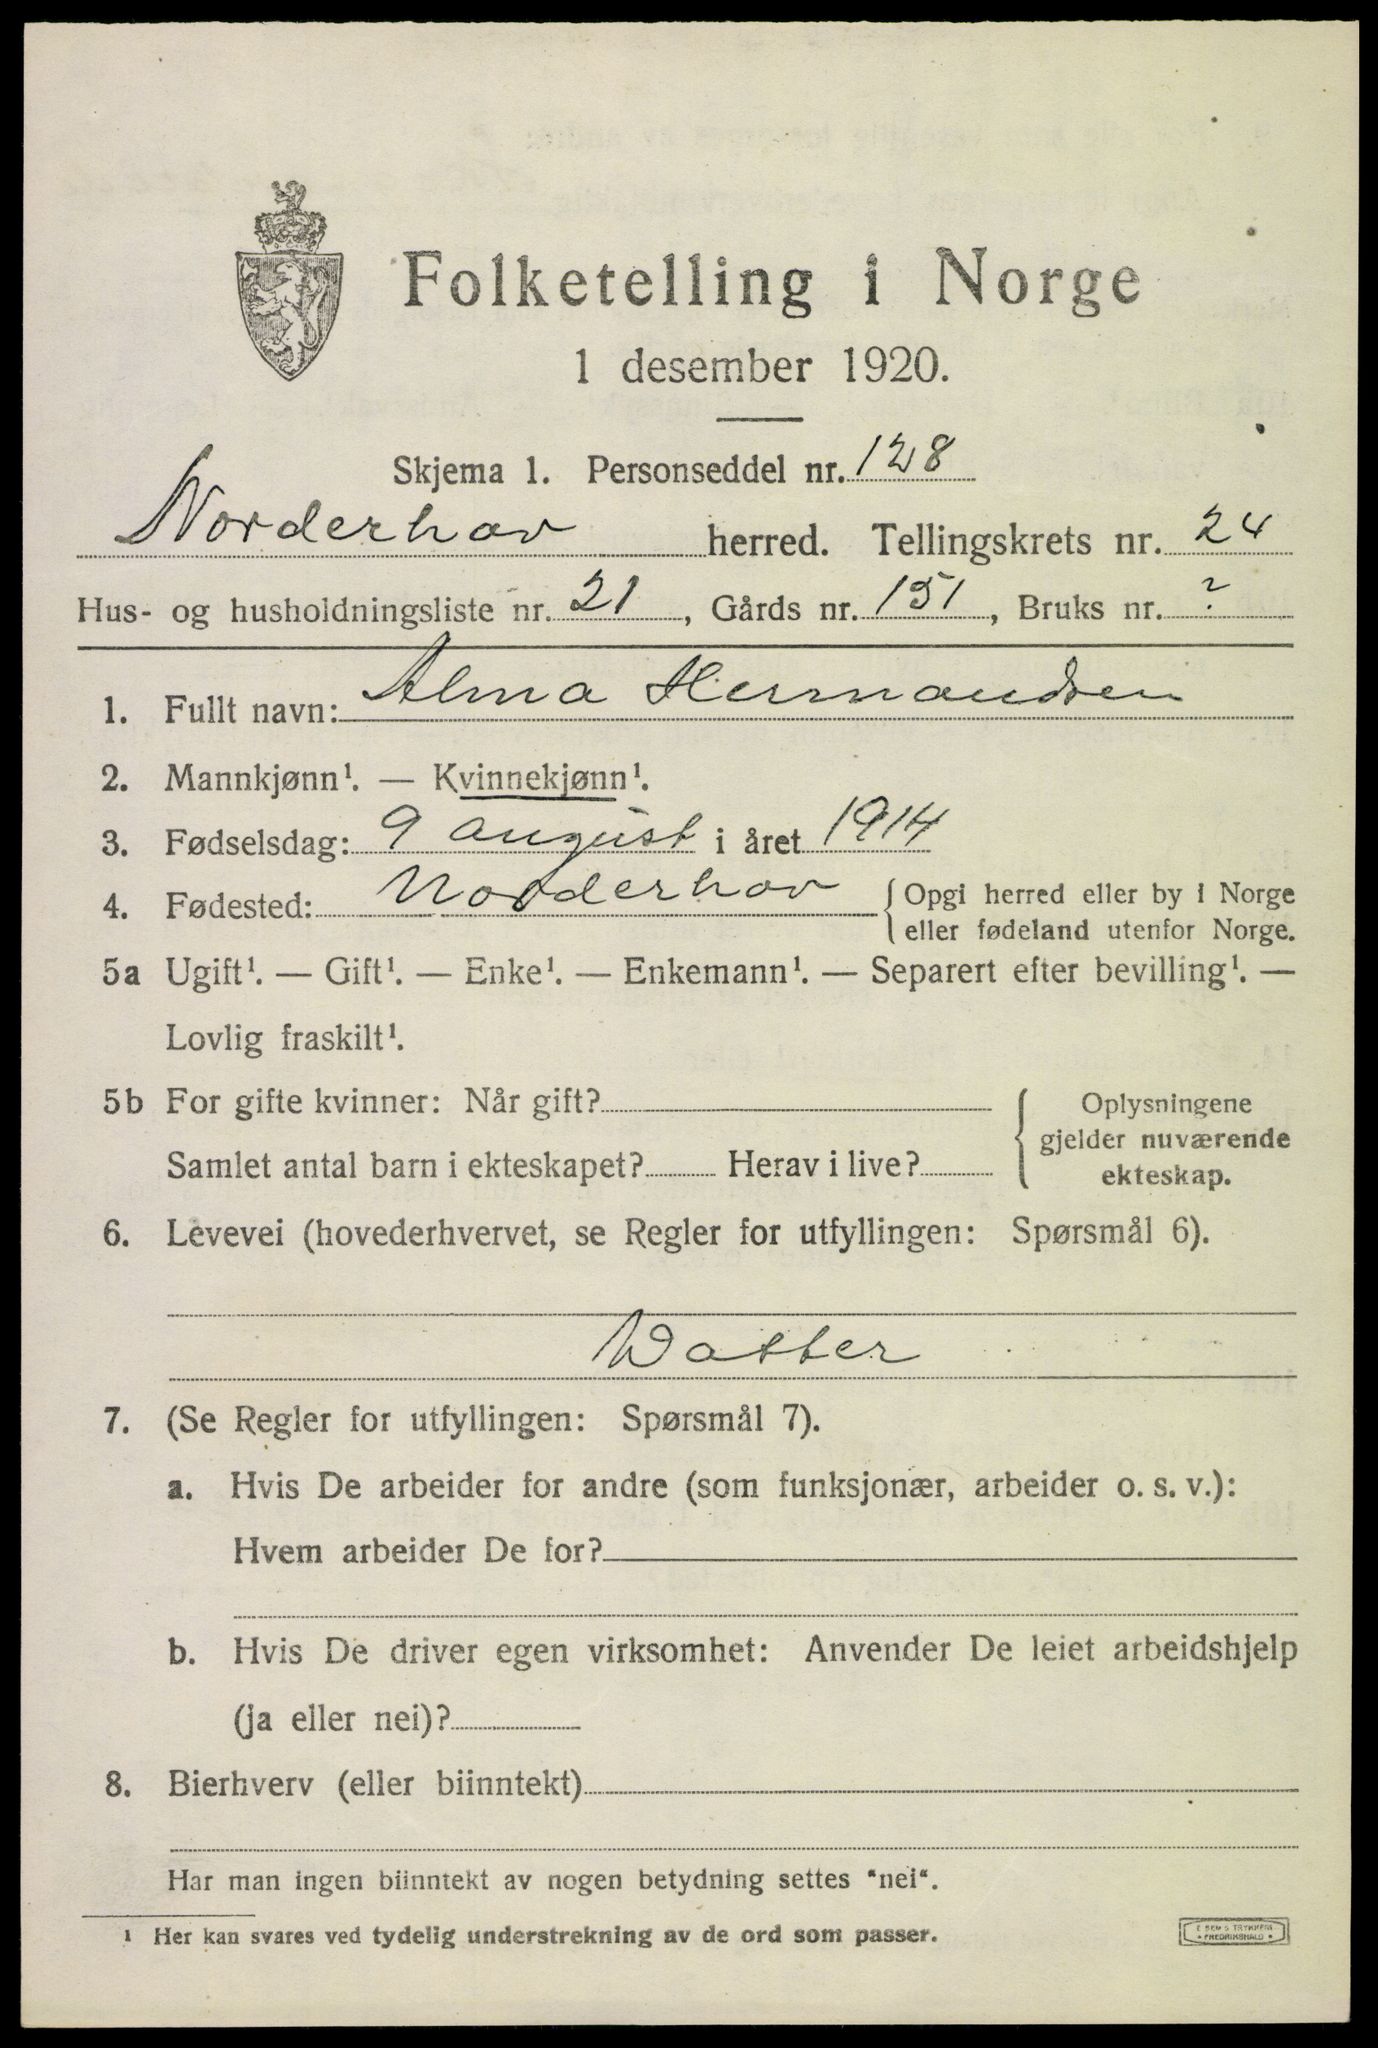 Folketelling i Norge
1 desember 1920.
Skjema 1. Personseddel nr. 128
Norderhov herred. Tellingskrets nr. 24
Hus- og husholdningsliste nr. 21, Gårds nr. 151, Bruks nr. ?
1. Fullt navn: Alma Hermandsen
2. Mannkjønn¹. — Kvinnekjønn¹.
3. Fødselsdag: 9 august i året 1914
4. Fødested: Norderhov { Opgi herred eller by i Norge
eller fødeland utenfor Norge.
5a Ugift¹. — Gift¹. — Enke¹. — Enkemann¹. — Separert efter bevilling¹. —
Lovlig fraskilt¹.
5b For gifte kvinner: Når gift?
Samlet antal barn i ekteskapet? Herav i live?
{ Oplysningene
gjelder nuværende
ekteskap.
6. Levevei (hovederhvervet, se Regler for utfyllingen: Spørsmål 6).
Datter
7. (Se Regler for utfyllingen: Spørsmål 7).
a. Hvis De arbeider for andre (som funksjonær, arbeider o. s. v.):
Hvem arbeider De for?
b. Hvis De driver egen virksomhet: Anvender De leiet arbeidshjelp
(ja eller nei)?
8. Bierhverv (eller biinntekt)
Har man ingen biinntekt av nogen betydning settes "nei".
¹ Her kan svares ved tydelig understrekning av de ord som passer.
E SEM'S TRYKKERI
• FREDRIKSHALD •